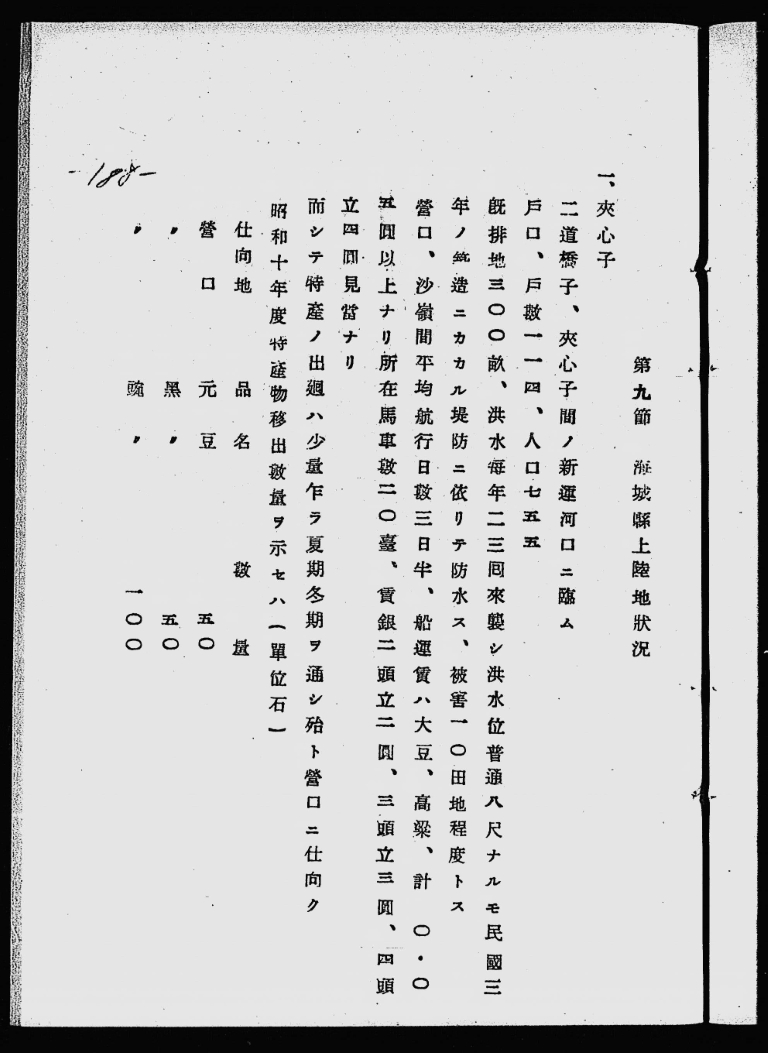 第九節　海城縣上陸地狀況
一、夾心子
二道橋子、夾心子間ノ新運河口ニ臨ム
戶口、戶數一一四、人口七五五
既排地三〇〇畝、洪水每年二三囘來襲シ洪水位普通八尺ナルモ民國三
年ノ築造ニカカル堤防ニ依リテ防水ス、被害一〇田地程度トス
營口、沙嶺間平均航行日數三日半、船運賃ハ大豆、高粱、計　〇・〇
五圓以上ナリ所在馬車數二〇臺、賃銀二頭立二圓、三頭立三圓、四頭
立四圓見當ナリ
而シテ特產ノ出廻ハ少量乍ラ夏期冬期ヲ通シ殆ト營口ニ仕向ク
昭和十年度特產物移出數量ヲ示セハ（單位石）
仕向地　品名　數量
營口　元豆　五〇
〃　黑〃　五〇
〃　豌〃　一〇〇